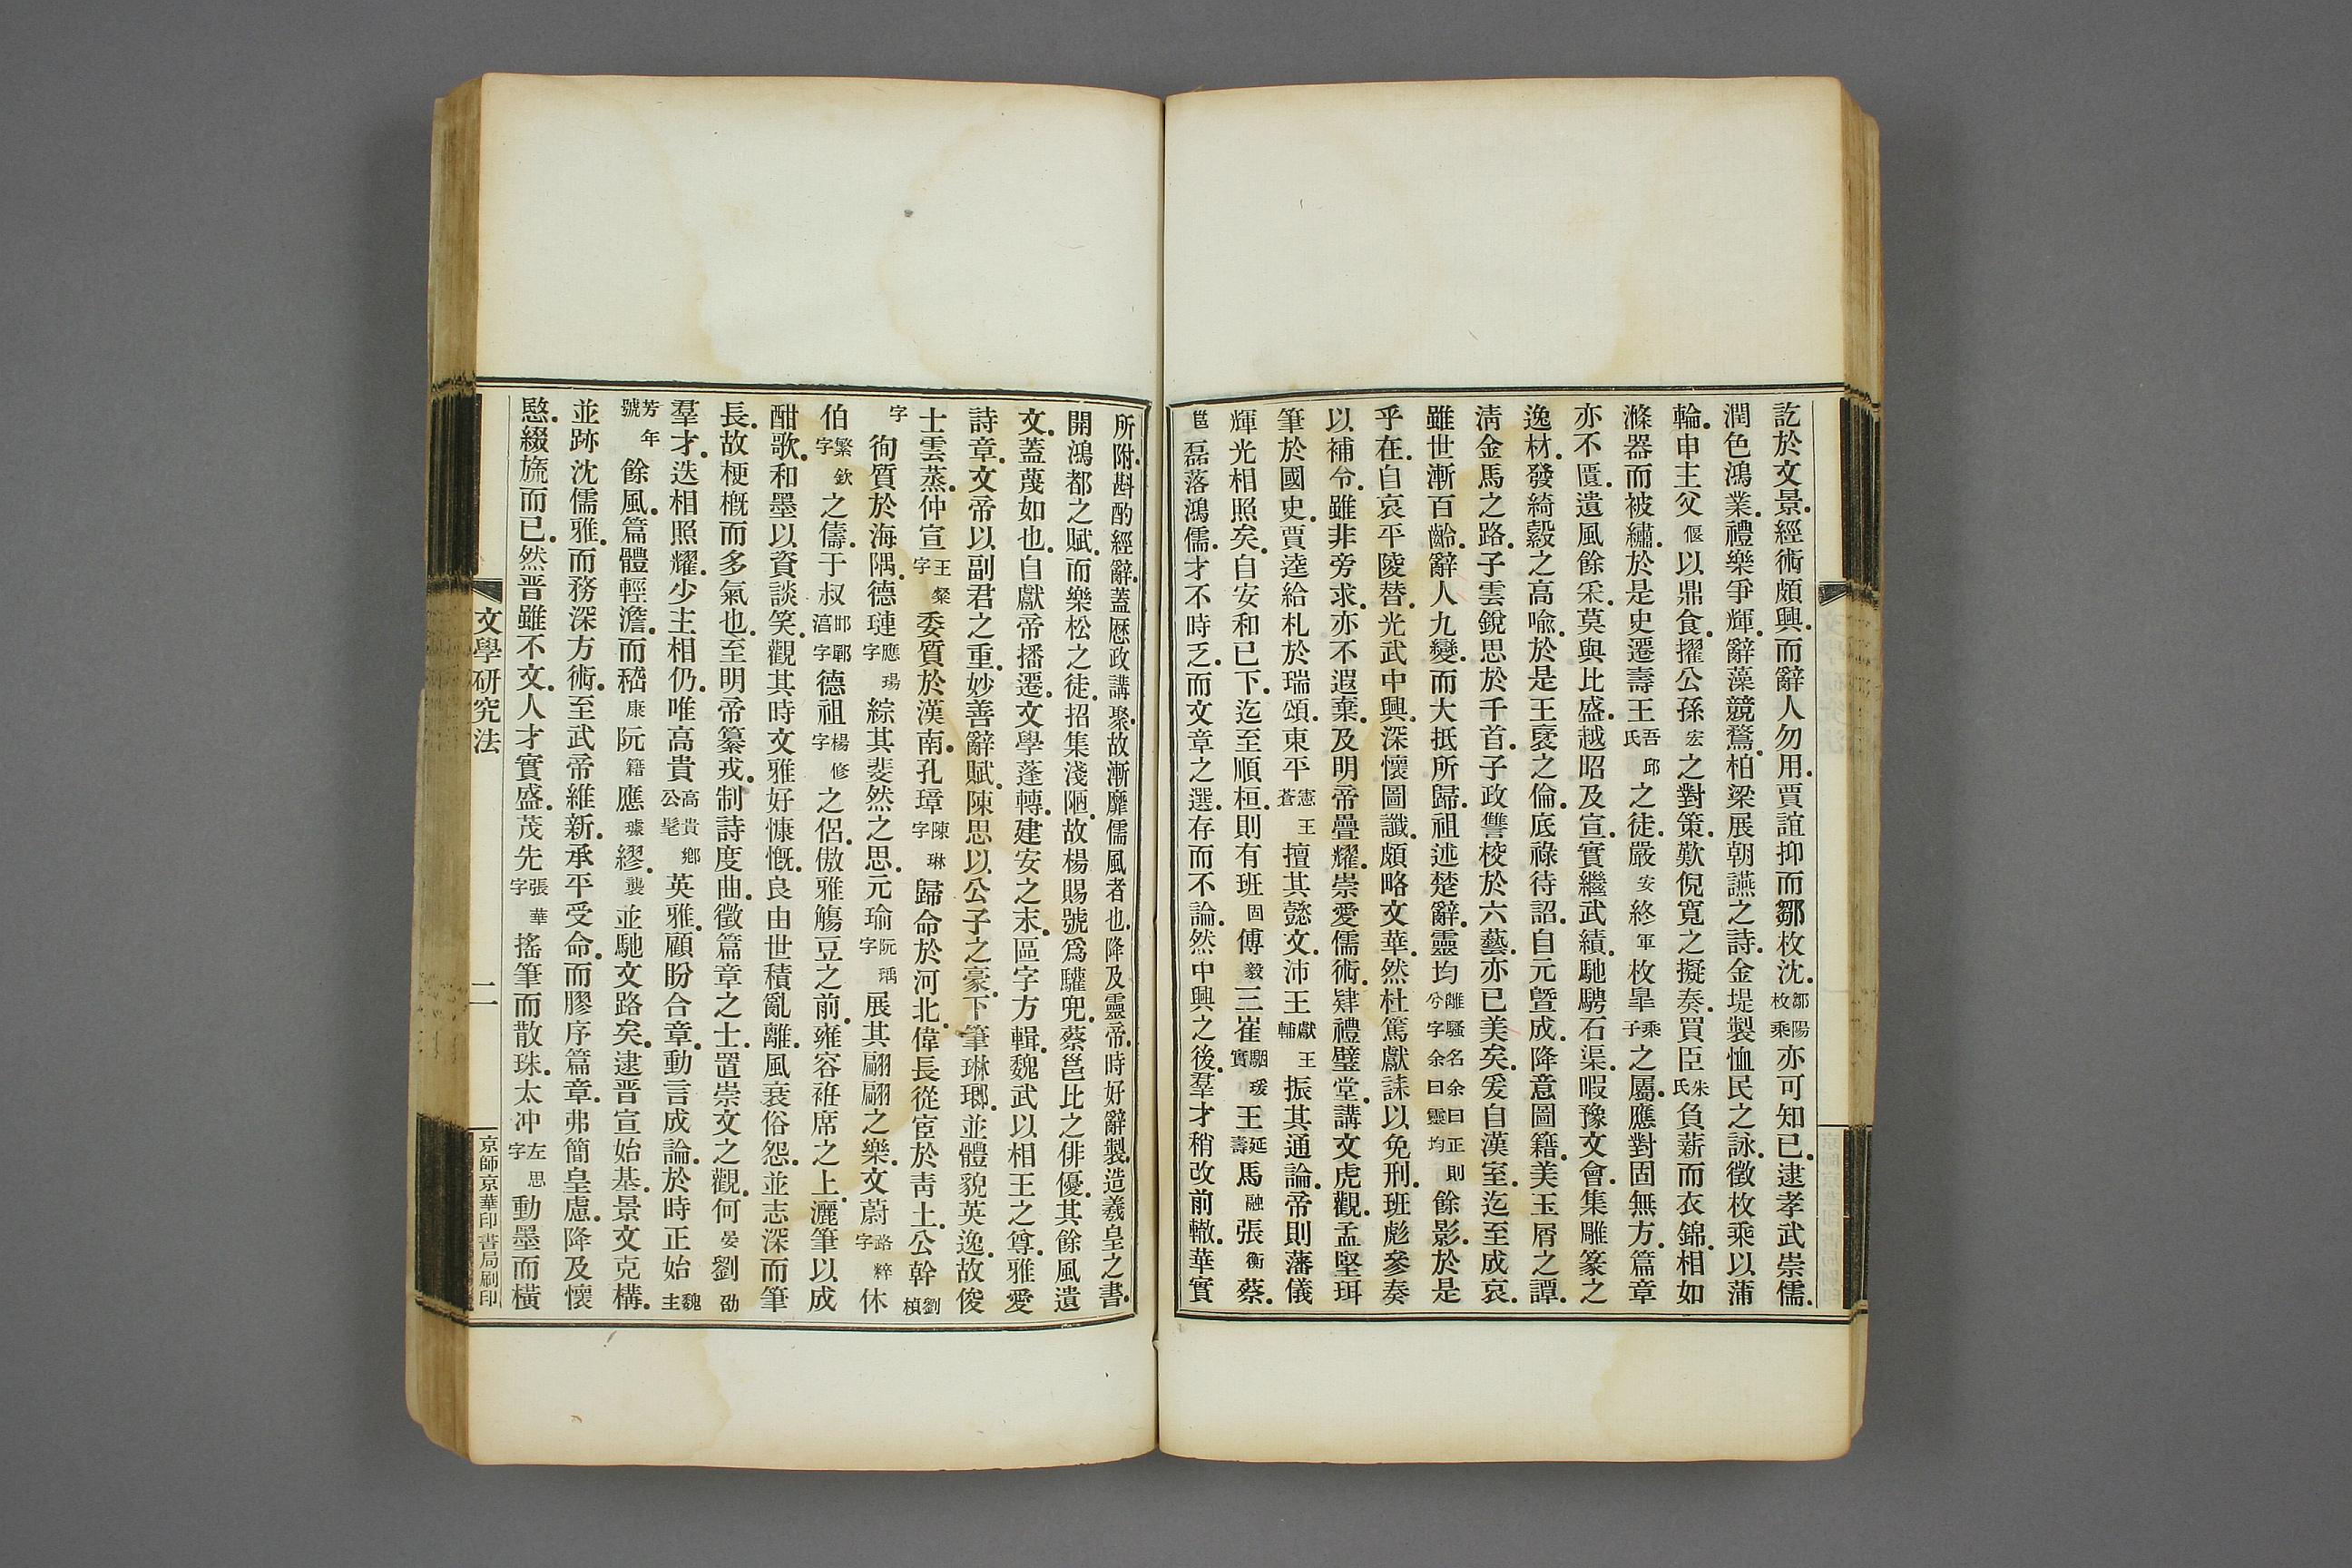 訖於文景.經術頗興.而辭人勿用.賈誼抑而鄒枚沈.鄒陽枚乘亦可知已.逮孝武崇儒.
潤色鴻業.禮樂爭輝.辭藻競鶩.柏梁展朝讌之詩.金堤製恤民之詠.徵枚乘以蒲
輪.申主父偃以鼎食.擢公孫宏之對策.歎倪寬之擬奏.買臣朱氏負薪而衣錦.相如
滌器而被繡.於是史遷壽王吾邱氏之徒.嚴安終軍枚皐乘子之屬.應對固無方.篇章
亦不匱.遺風餘采.莫與比盛.越昭及宣.實繼武績.馳騁石渠.暇豫文會.集雕篆之
逸材.發綺縠之高喩.於是王襃之倫.底祿待詔.自元曁成.降意圖籍.美玉屑之譚.
淸金馬之路.子雲銳思於千首.子政讐校於六藝.亦已美矣.爰自漢室.迄至成哀.
雖世漸百齡.辭人九變.而大抵所歸.祖述楚辭.靈均離騷名余曰正則兮字余曰靈均餘影.於是
乎在.自哀平陵替.光武中興.深懷圖讖.頗略文華.然杜篤獻誄以免刑.班彪參奏
以補令.雖非旁求.亦不遐棄.及明帝疊耀.崇愛儒術.肄禮璧堂.講文虎觀.孟堅珥
筆於國史.賈逵給札於瑞頌.東平憲王蒼擅其懿文.沛王獻王輔振其通論.帝則藩儀
輝光相照矣.自安和已下.迄至順桓.則有班固傅毅三崔駰瑗實王延壽馬融張衡蔡.
邕磊落鴻儒.才不時乏.而文章之選.存而不論.然中興之後.羣才稍改前轍.華實
所附.斟酌經辭.蓋歷政講聚.故漸靡儒風者也.降及靈帝.時好辭製.造羲皇之書.
開鴻都之賦.而樂松之徒.招集淺陋.故楊賜號爲驩兜.蔡邕比之俳優.其餘風遺
文.蓋蔑如也.自獻帝播遷.文學蓬轉.建安之末.區字方輯.魏武以相王之尊.雅愛
詩章.文帝以副君之重.妙善辭賦.陳思以公子之豪.下筆琳瑯.並體貌英逸.故俊
士雲蒸.仲宣王粲字委質於漢南.孔璋陳琳字歸命於河北.偉長從宦於靑土.公幹劉楨
字徇質於海隅.德璉應瑒字綜其斐然之思.元瑜阮瑀字展其翩翩之樂.文蔚路粹字休
伯繁欽字之儔.于叔邯鄲淳字德祖楊修字之侶.傲雅觴豆之前.雍容袵席之上.灑筆以成
酣歌.和墨以資談笑.觀其時文雅好慷慨.良由世積亂離.風衰俗怨.並志深而筆
長.故梗概而多氣也.至明帝纂戎.制詩度曲.徵篇章之士.置崇文之觀.何晏劉劭
羣才.迭相照耀.少主相仍.唯高貴高貴鄉公髦英雅.顧盼合章.動言成論.於時正始魏主
芳年號餘風.篇體輕澹.而嵇康阮籍應璩繆襲並馳文路矣.逮晋宣始基.景文克構.
並跡沈儒雅.而務深方術.至武帝維新.承平受命.而膠序篇章.弗簡皇慮.降及懷
愍.綴旒而已.然晋雖不文.人才實盛.茂先張華字搖筆而散珠.太冲左思字動墨而橫
文學硏究法
二
京師京華印書局刷印